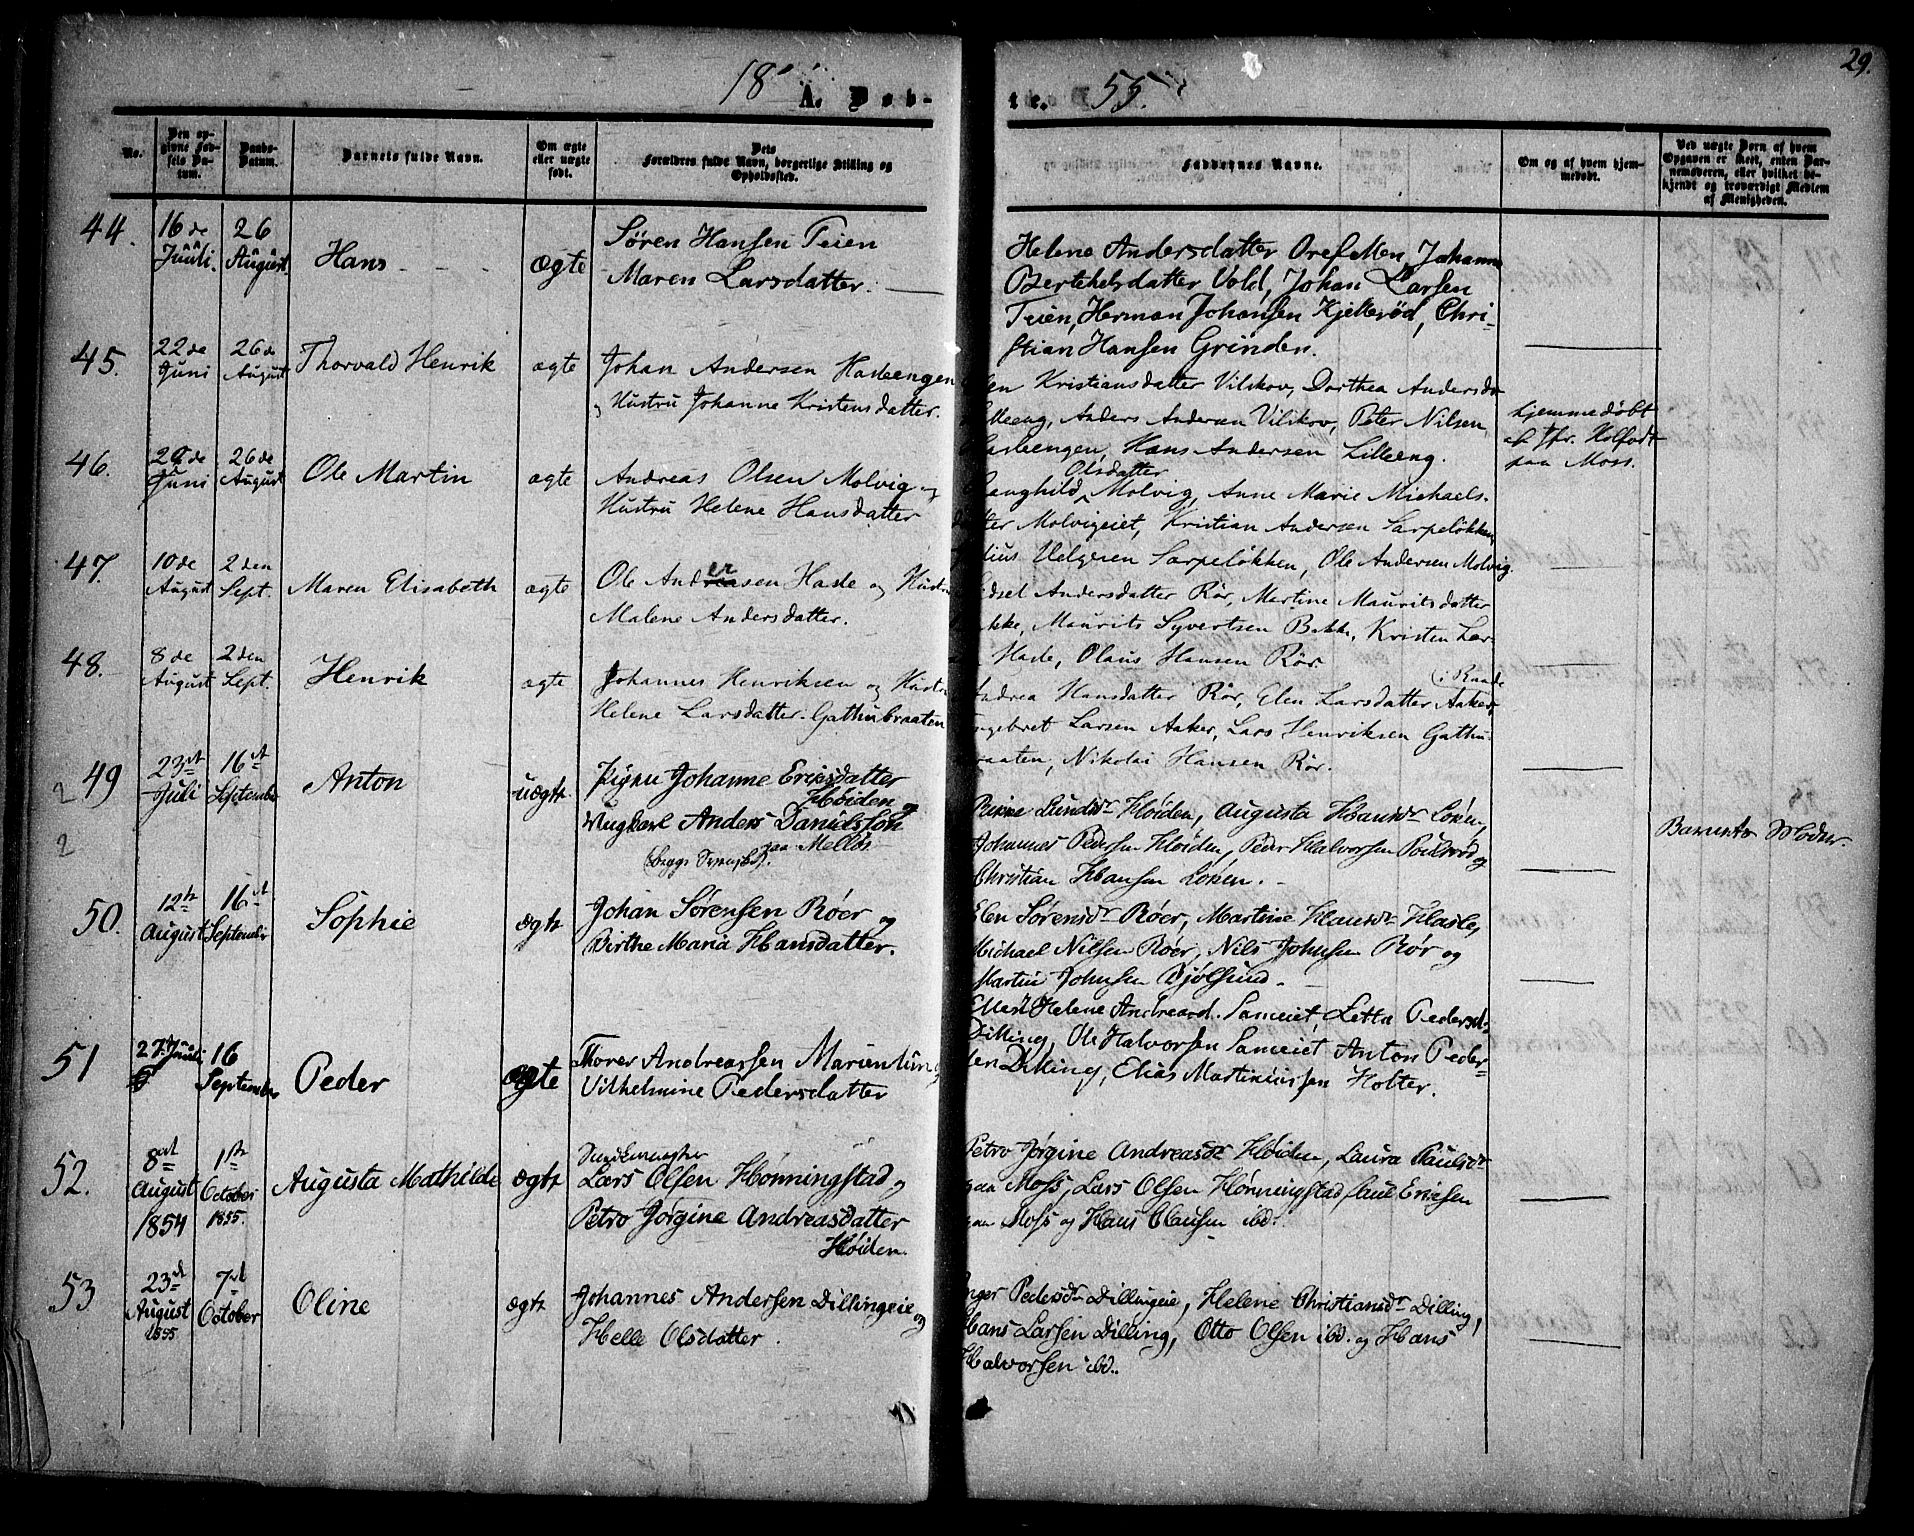 29.
18
A. Døb-
te.
55.
No.
Den op-
givne Fød-
sels Da-
tum.
Daabs-
Datum.
Barnets fulde Navn.
Om ægte
eller uægte
født.
Dets
Forældres fulde Navn, borgerlige Stilling og
Opholdssted.
Faddernes Navne.
Om og af hvem hjem-
medøbt.
Ved uægte Børn af hvem
Opgaven er skeet, enten Bar-
nemoderen, eller hvilket be-
kjendt og troværdigt Medlem
af Menigheden.
44.
16 de
Juuli
26
August
Hans
Ægte
Søren Hansen Teien
Maren Larsdatter.
Helene Andersdatter Johanne
Bertehelsdatter Vold, Johan Larsen
Teien, Herman Johansen Kjellerød, Chri-
stian Hansen Grinden.
45.
22 de
Juni
26 de
August
Thorvald Henrik
ægte
Johan Andersen Hasleengen
og Hustru Johanne Kristensdatter.
Kristiansdatter Vilskov, Dorthea Andersda
Anders Andersen Vilskov, Peter Nilsen
Hans Andersen Lilleeng.
hjemmedøbt
af
paa Moss.
46.
de
Juni
26 de
August
Ole Martin
ægte
Andreas Olsen Molvig og
Hustru Helene Hansdatter
Olsdatter
Molvig, Anne Marie Michaels-
Molvigeiet, Kristian Andersen Sarpeløkken
Sarpeløkken, Ole Andersen Molvig.
47.
10 de
August
2 den
Sept.
Maren Elisabeth
ægte
Ole Andersen Hasle og Hustru
Malene Andersdatter.
Andersdatter Rør, Martine Mauritsdatter
Maurits Syvertsen Bakke, Kristen Lar-
Hasle, Olaus Hansen Rør
48.
8 de
August
2 den
Sept.
Henrik
ægte
Johannes Henriksen og Hustru
Helene Larsdatter. Gathubraaten
(i Raade
Andrea Hansdatter Rør, Elen Larsdatter Aaker,
Larsen Aaker, Lars Henriksen Gathu-
braaten, Nikolai Hansen Rør.
2
49
23de
Juli
16de
September
Anton
uægte
Pigen Johanne Eriksdatter
Høiden og
Ungkarl Anders Danielsson
paa Melløs
2
Høiden, Augusta Hansdr Løken,
Johannes Pedersen Høiden, Peder Halvorsen og
Christian Hansen Løken.
Barnets Moder.
50.
12te
August
16de
September
Sophie
ægte
Johan Sørensen Røer og
Birthe Maria Hansdatter.
Elen Sørensdr Røer, Martine Hansdr Hasle,
Michael Nilsen Røer, Nils Johnsen Rør og
Martin Johnsen Bjølsund.
51
27. Juuli
16
September
Peder
ægte
Thorer Andreassen Marienlun
Vilhelmine Pedersdatter
Helene Andreasd. Sameiet, Letta Pedersd.
Dilling, Ole Halvorsen Sameiet Anton Peder-
sen Dilling, Elias Martiniussen Holter.
52.
8de
August
1854
1ste
October
1855.
Augusta Mathilde
ægte
Lars Olsen Hønningstad og
Petro Jørgine Andreasdatter
Høiden.
Petro Jørgine Andreasdr Høiden, Laura Paulsdr
paa Moss, Lars Olsen Hønningstad, Paul Ericsen
paa Moss og Hans Clausen ibd.
53
23de
August
1855
7de
October
Oline
ægte
Johannes Andersen Dillingeie og
Helle Olsdatter.
Inger Pedersdr Dillingeie, Helene Christiansdr Dilling,
Hans Larsen Dilling, Otto Olsen ibd. og Hans
Halvorsen ibd.